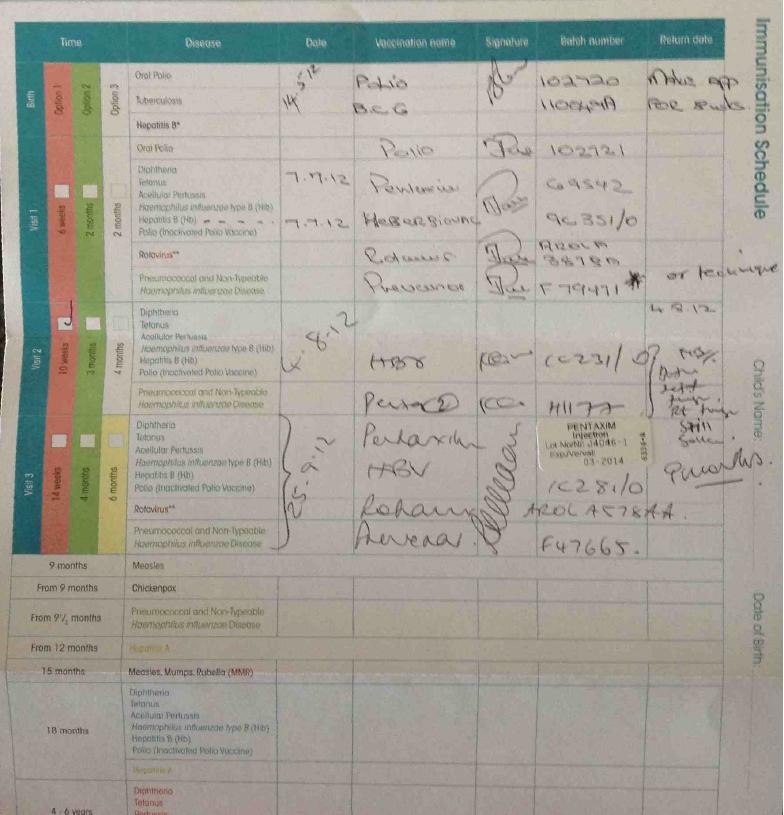 Immunisation Schedule
Child's Name:
Date of Birth:
Time Disease Date Vaccination name Signature Batch number Return date
Birth
Option 1
Option 2
Option 3
Oral Polio 14.5.12 Polio 102720
Tuberculosis B.C.G for 6wks
Hepatitis B*
Visit 1
6 weeks
2 months
2 months
Oral Polio Polio 102721
Diphtheria
Tetanus 7.7.12 G9542
Acellular Pertussis
Haemophilus influenzae type B (Hib)
Hepatitis B (Hb) 7.7.12 9C351/0
Polio (Inactivated Polio Vaccine)
Rotavirus**
Pneumococcal and Non-Typeable F79471 * or technique
Haemophilus influenzae Disease
Visit 2
10 weeks
3 months
4 months
Diphtheria 4.8.12
Tetanus
Acellular Pertussis 4.8.12
Haemophilus influenzae type B (Hib)
Hepatitis B (Hb) HBV 1C231/0
Polio (Inactivated Polio Vaccine)
Pneumococcal and Non-Typeable H1177
Haemophilus influenzae Disease
Visit 3
14 weeks
4 months
6 months
Diphtheria PENTAXIM Still
Tetanus Pentaxim Injection
Acellular Pertussis 25.9.12 Lot No/Nr: J4046-1
Haemophilus influenzae type B (Hib) HBV Exp/Verval:
03-2014
Hepatitis B (Hb) 9 months.
Polio (Inactivated Polio Vaccine) 1C281/0
Rotavirus** AROLA578AA.
Pneumococcal and Non-Typeable Prevenar F47665.
Haemophilus influenzae Disease
9 months Measles
From 9 months Chickenpox
From 9½ months Pneumococcal and Non-Typeable
Haemophilus influenzae Disease
From 12 months Hepatitis A
15 months Measles, Mumps, Rubella (MMR)
18 months
Diphtheria
Tetanus
Acellular Pertussis
Haemophilus influenzae type B (Hib)
Hepatitis B (Hb)
Polio (Inactivated Polio Vaccine)
Hepatitis A
4 - 6 years
Diphtheria
Tetanus
Pertussis